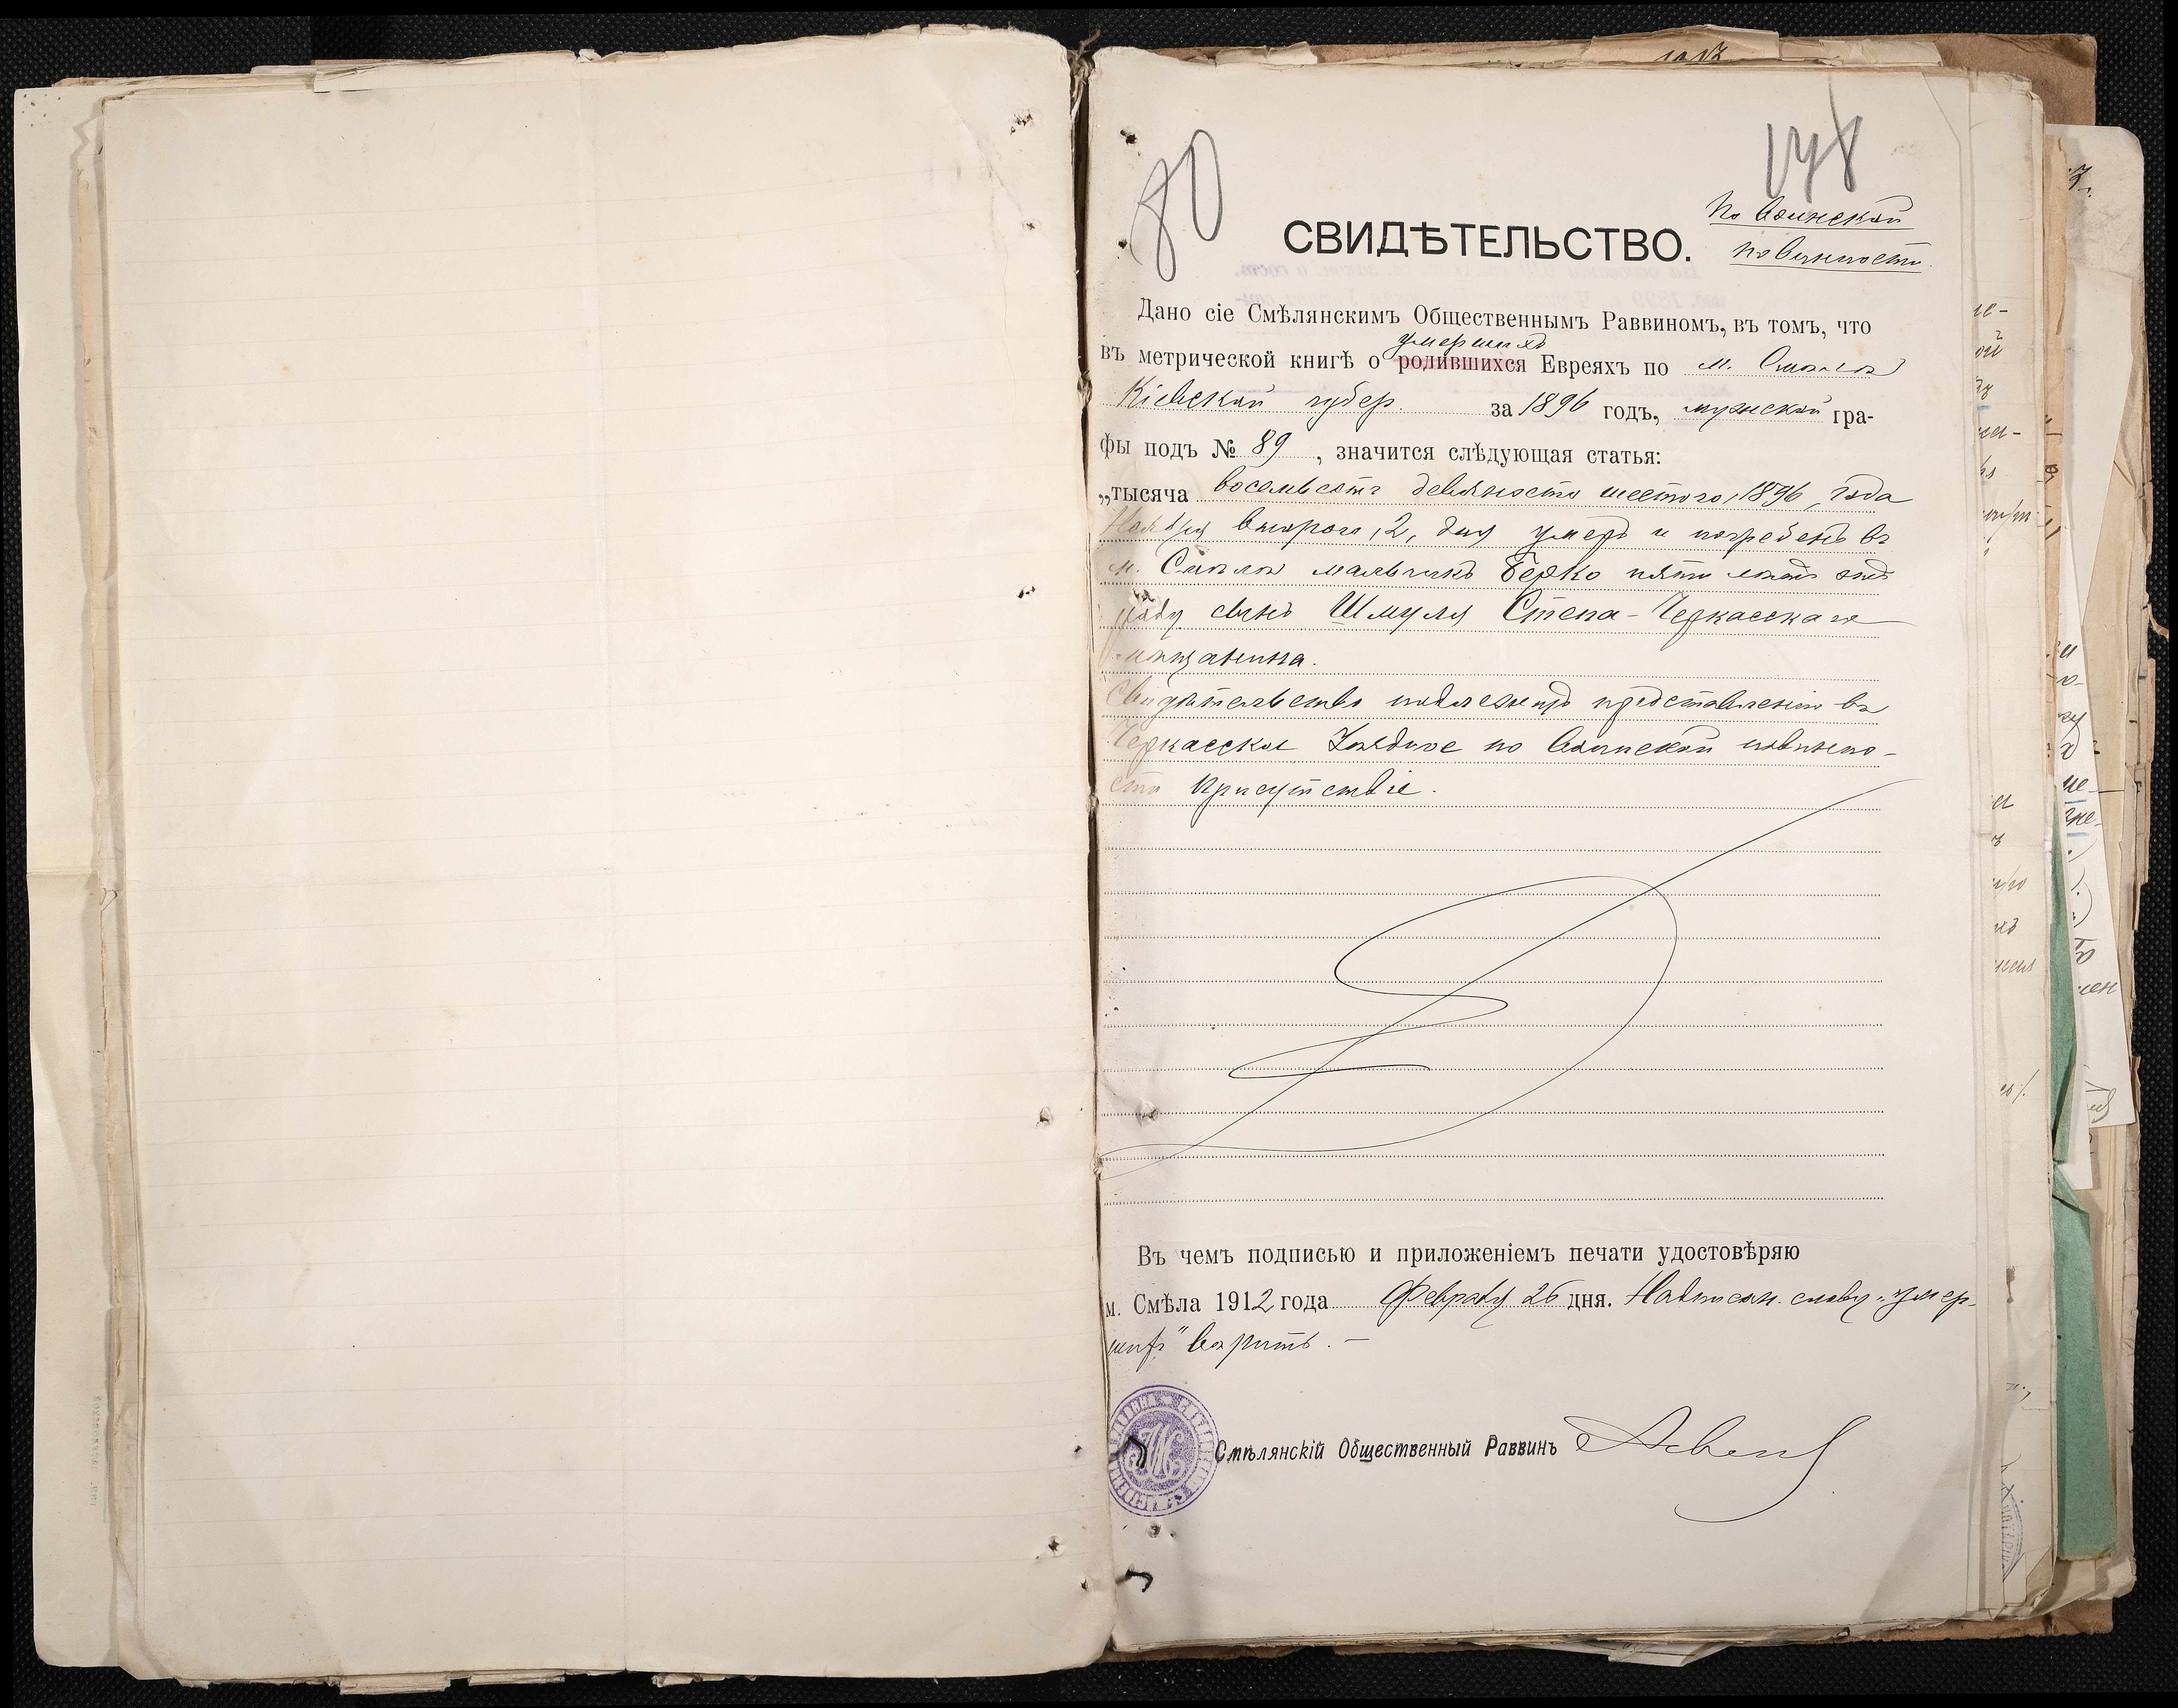 80
148
По воинской
повинности
СВИДѢТЕЛЬСТВО.
Дано сіе Смѣлянскимъ Общественнымъ Раввиномъ, въ томъ, что
умершихъ
въ метрической книгѣ о родившихся Евреяхъ по м. Смѣлѣ
Кіевской губер. за 1896 годъ, мужской гра-
фы подъ № 89, значится слѣдующая статья:
„тысяча восемьсотъ девяносто шестого, 1896, года
Ноября второго, 2, дня умеръ и погребенъ въ
м. Смѣлѣ мальчикъ Берко пяти лѣтъ отъ
роду сынъ Шмуля Степа - Черкасскаго
мѣщанина.
Свидѣтельство подлежитъ представленію въ
Черкасское Уѣздное по воинской повинно-
сти присутствіе.
Въ чемъ подписью и приложеніемъ печати удостовѣряю
м. Смѣла 1912 года Февраля 26 дня. Надписан. слову „умер-
шихъ" вѣрить. —
Смѣлянскій Общественный Раввинъ